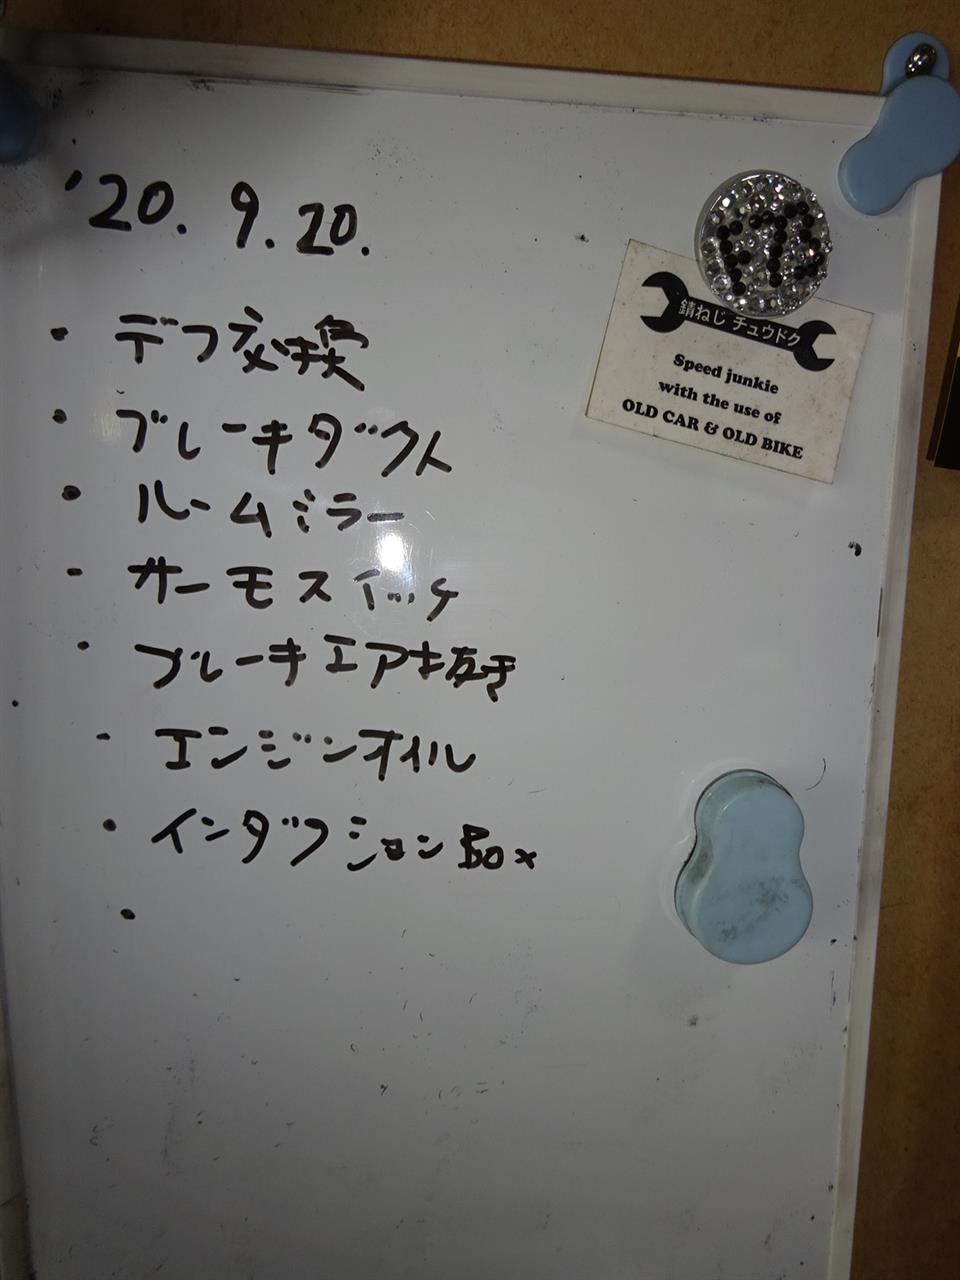 '20. 9. 20.
・デフ交換
・ブレーキダクト
・ルームミラー
・サーモスイッチ
・ブレーキエアー抜き
・エンジンオイル
・インダクションBox
・
錆ねじ チュウドク
Speed junkie
with the use of
OLD CAR & OLD BIKE